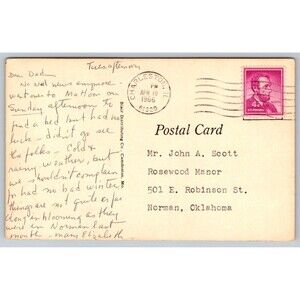 Tues afternoon
Dear Dad
No real news anymore -
went over to Mattoon on
Sunday afternoon to
find a bed but had no
luck - didn't go see
the folks - Cold &
rainy weather, but
we shouldn't complain
had no bad winter.
Things are not quite as far
along in blooming as they
were in Norman last
month - Mary Elizabeth
CHARLESTON, IL
PM
APR 19
1966
61920
4¢
Blair Distributing Co., Candlestar, Mo.
Postal Card
Mr. John A. Scott
Rosewood Manor
501 E. Robinson St.
Norman, Oklahoma